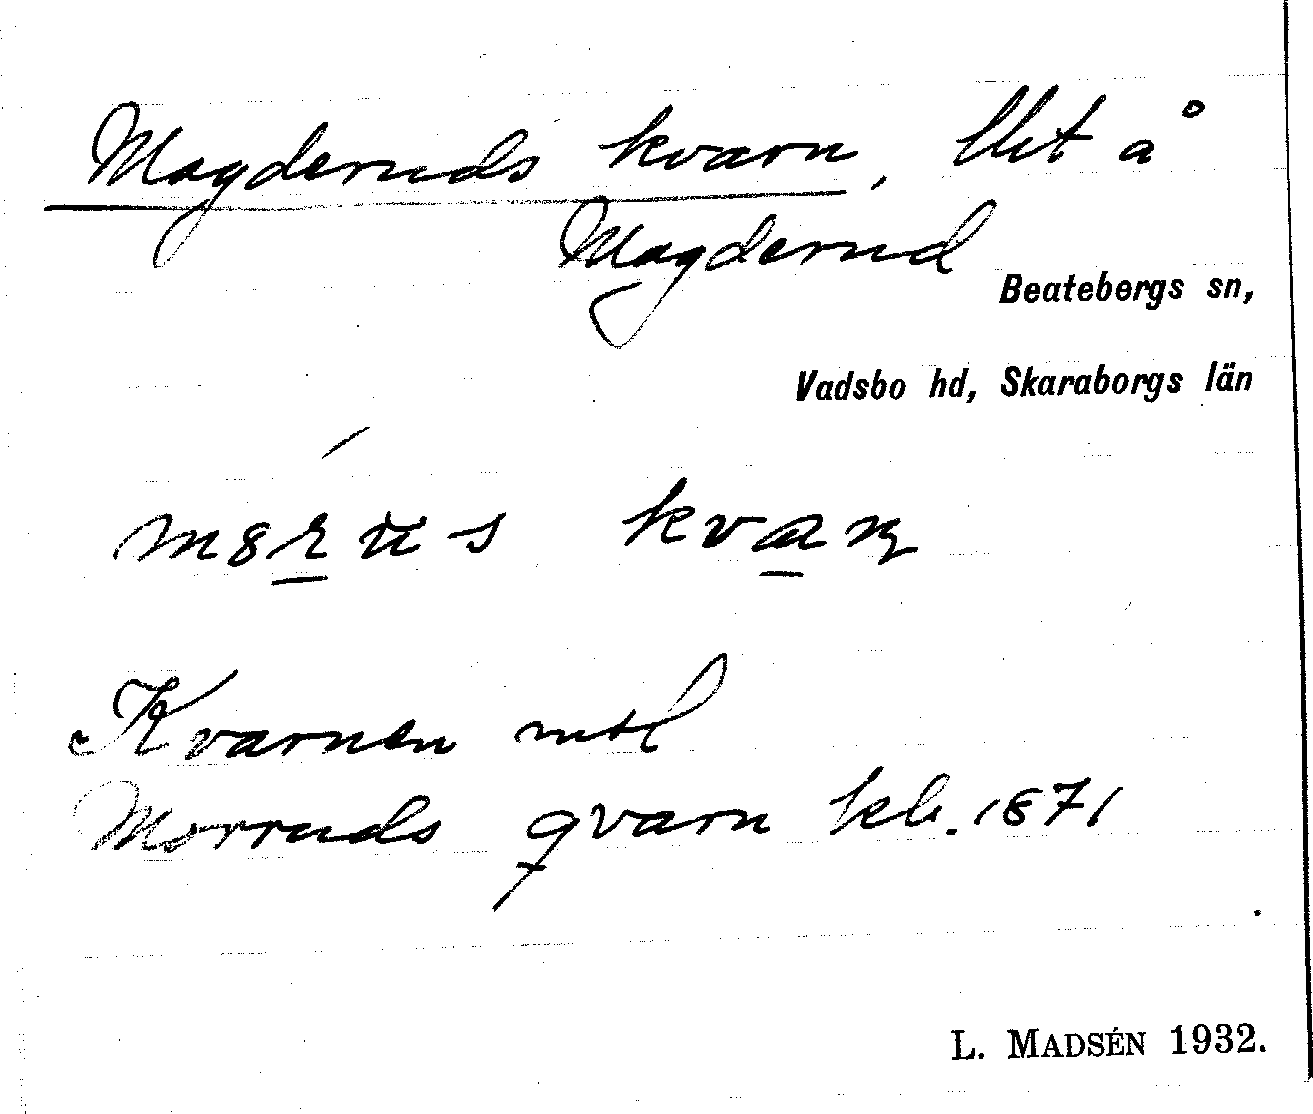 Magderuds kvarn, llit å
Magderud
Beatebergs sn,
Vadsbo hd, Skaraborgs län
kvaɳ
Kvarnen mtl
Morruds qvarn kb. 1871
L. MADSÉN 1932.